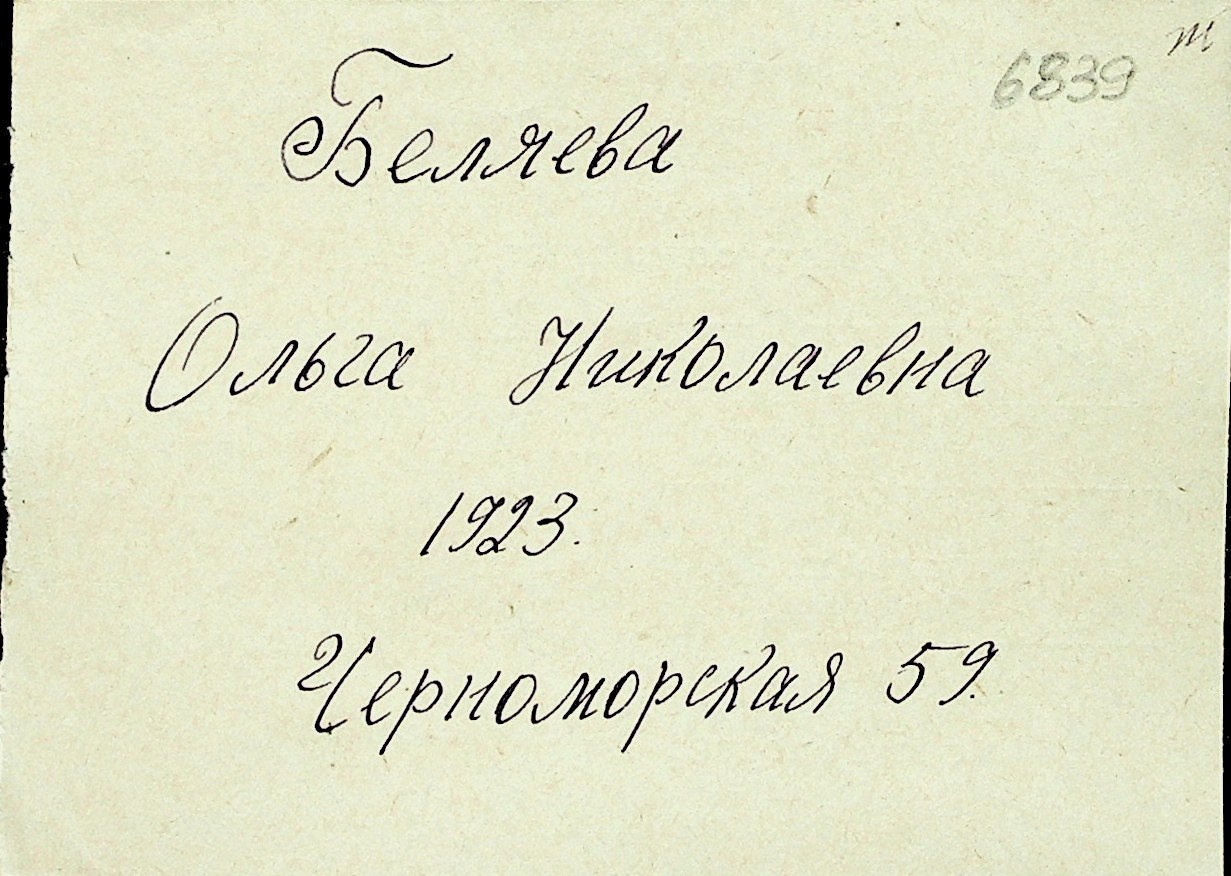 т
6839
Беляева
Ольга Николаевна
1923.
Черноморская 59.